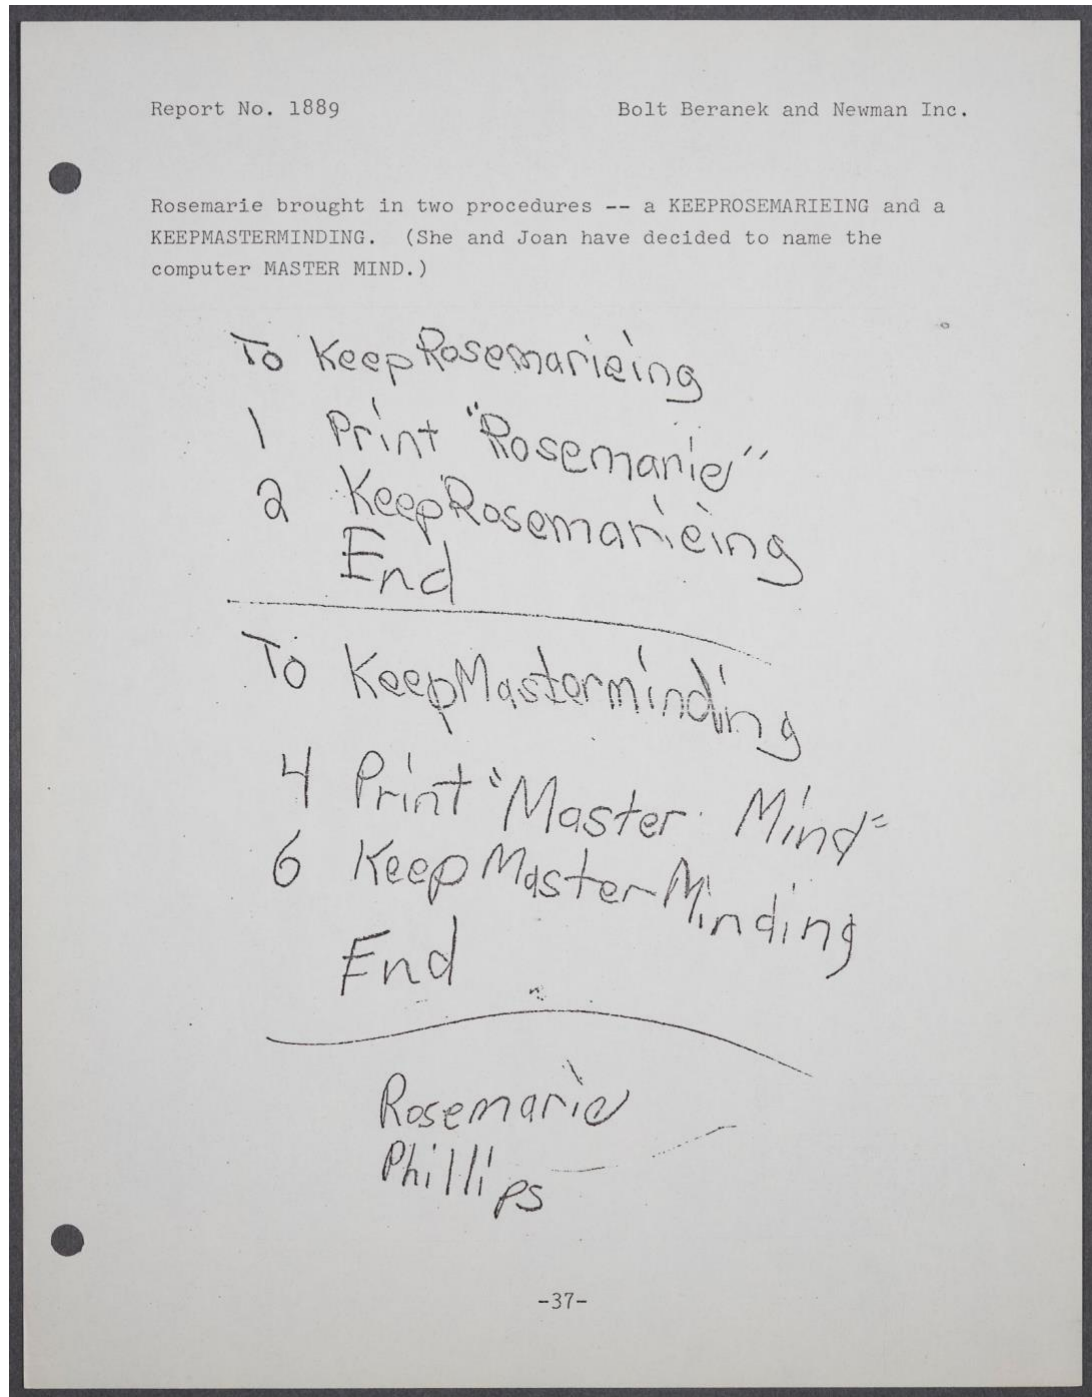 Report No. 1889 Bolt Beranek and Newman Inc.
Rosemarie brought in two procedures -- a KEEPROSEMARIEING and a
KEEPMASTERMINDING. (She and Joan have decided to name the
computer MASTER MIND.)
To KeepRosemarieing
1 Print "Rosemarie"
2 KeepRosemarieing
End
To KeepMasterminding
4 Print "Master Mind"
6 KeepMasterMinding
End
Rosemarie
Phillips
-37-